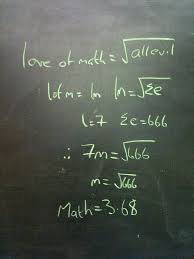 love of math = √all evil
lofm = ln ln = √Σe
l=7 Σe=666
∴ 7m = √666
m = √666
Math = 3.68